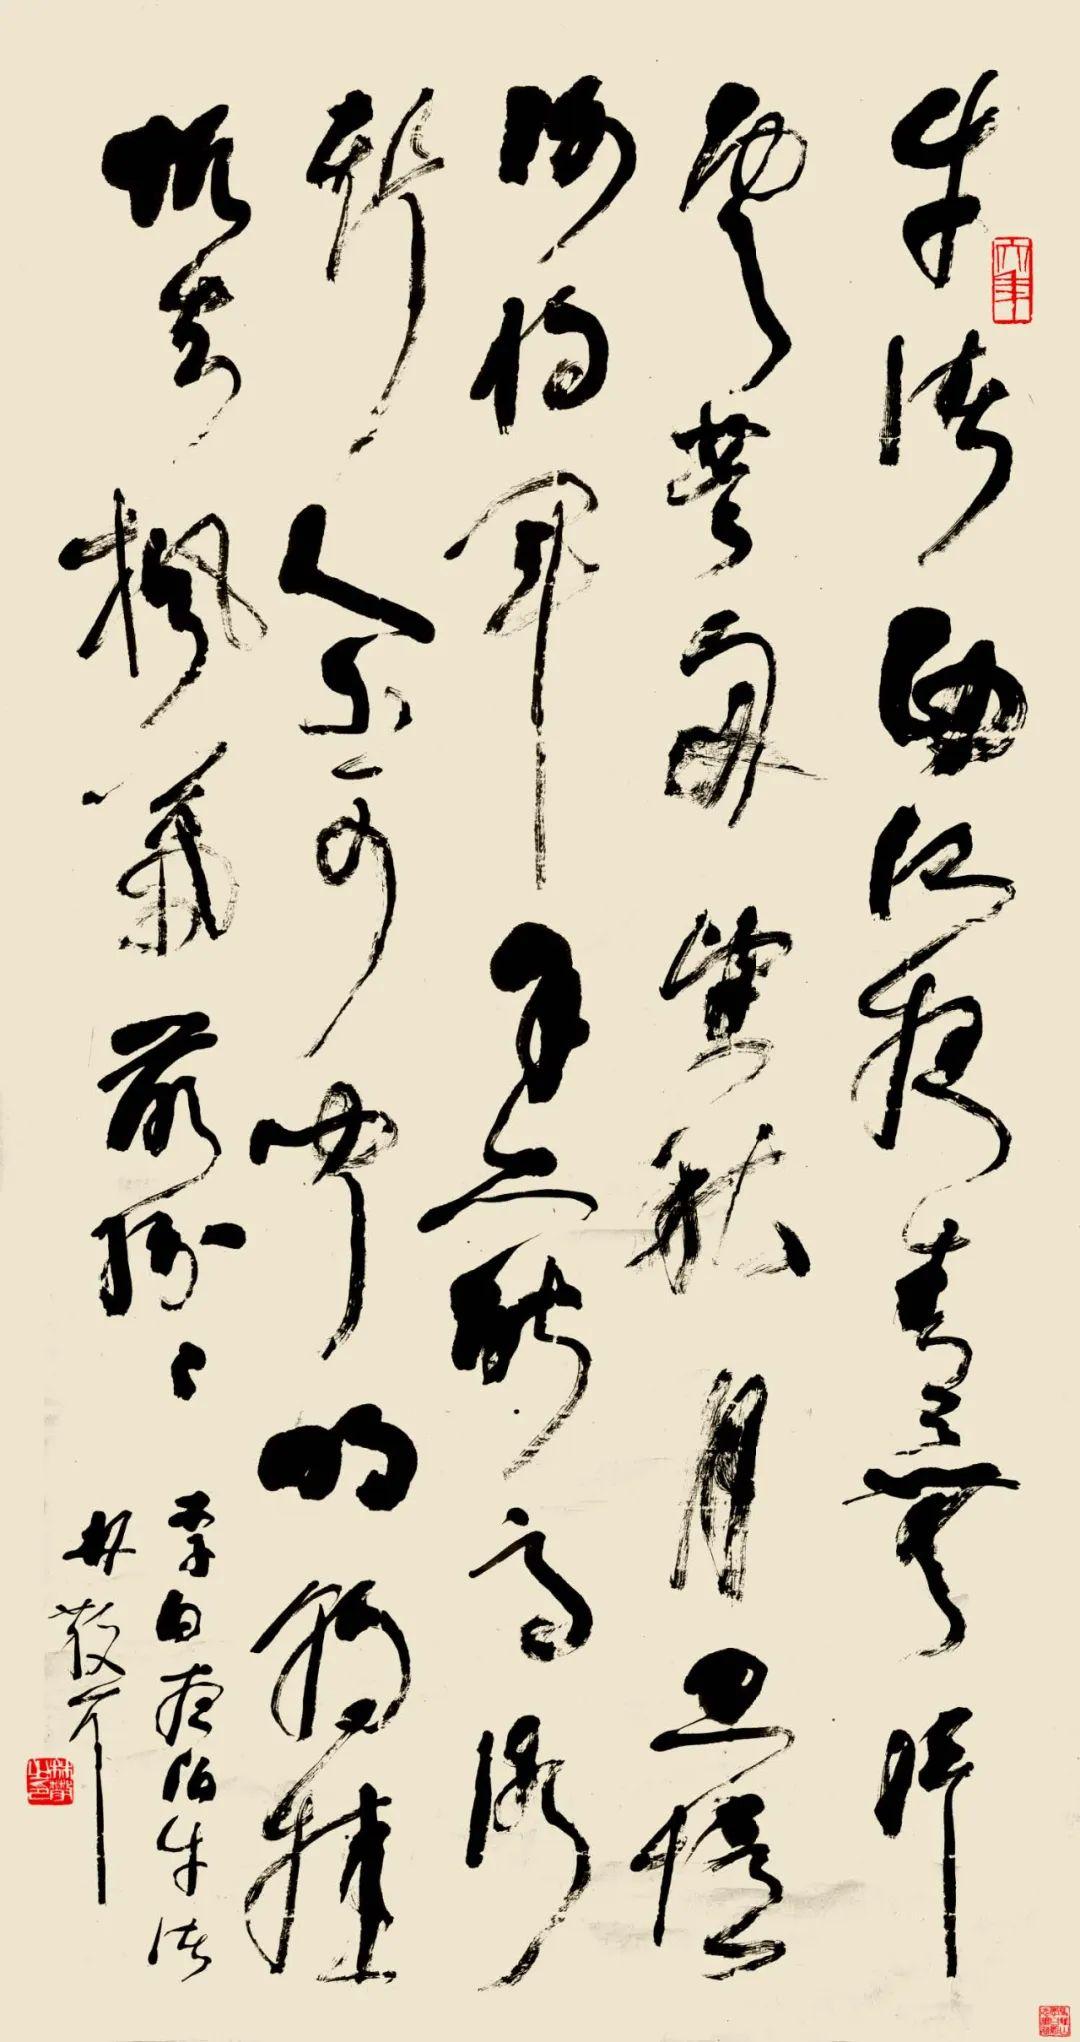 牛渚西江夜青天無片
雲登舟望秋月空憶
謝將軍余亦能高詠
斯人不可聞明朝挂
帆去楓葉落紛〻
李白夜泊牛渚
林散耳
林散之印